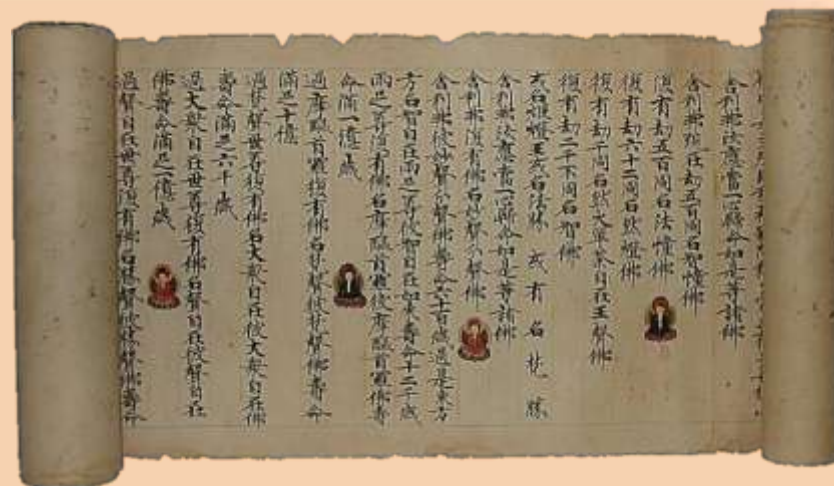 舍利弗汝應當一心歸命如是等諸佛
舍利弗現在劫五百同名智幢佛
復有劫五百同名法幢佛
復有劫六十二同名然燈佛
復有劫千同名然大自在王聲佛
復有劫二千不同名智佛
或名燈王或名法勝 或有名梵勝
舍利弗汝應當一心歸命如是等諸佛
舍利弗復有佛名妙聲分聲佛
舍利弗彼妙聲分聲佛壽命六十百歲過是東方
方名智自在而已尊彼智自在如來壽命十二千歲
而已尊復有佛名摩醯首羅彼摩醯首羅佛壽
命滿一億歲
過摩醯首羅復有佛名梵聲彼梵聲佛壽命
滿足十億
過梵聲世尊復有佛名大衆自在彼大衆自在佛
壽命滿足六千歲
過大衆自在世尊復有佛名聲自在彼聲自在
佛壽命滿足一億歲
過聲自在世尊復有佛名勝聲彼勝聲佛壽命